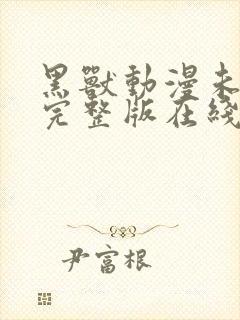 黑獸動漫未
完整版在綫
尹富根